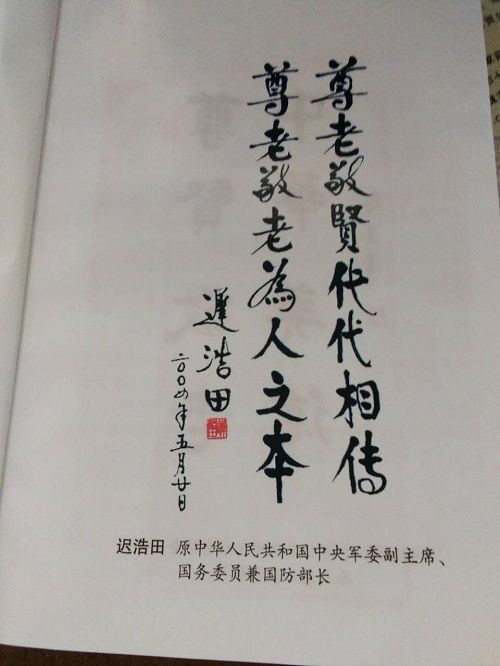 尊老敬賢代代相传
尊老敬老為人之本
遲浩田
二〇〇四年五月廿日
迟浩田 原中华人民共和国中央军委副主席、
国务委员兼国防部长